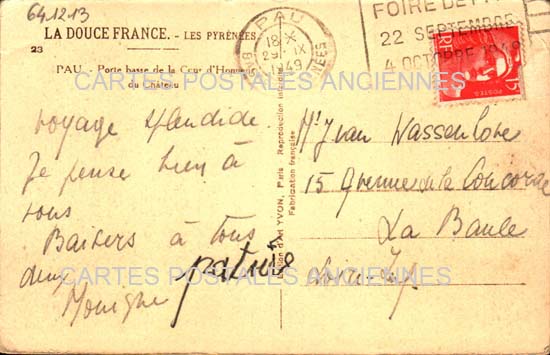 64.12.13
LA DOUCE FRANCE. - LES PYRÉNÉES.
23
PAU. - Porte basse de la Cour d'Honneur
du Château
PAU
18 X
1949
FOIRE DE
22 SEPTEMBRE
4 OCTOBRE 1949
15
POSTES
voyage splendide
Je pense bien à
vous
Baisers à tous
deux
Monique
patrice
Édition d'Art YVON, Paris Reproduction interdite
Fabrication française
Mr Yvan Wassenhove
15 Avenue de la Concorde
La Baule
Loire-Inf
CARTES POSTALES ANCIENNES
CARTES POSTALES ANCIENNES